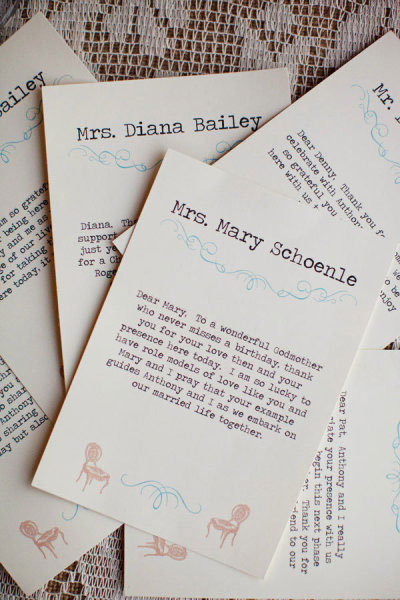 Bailey
m so grateful
being here
and me as
e of our live
for taking
ere today, it
e sharing
Anthony
s sharing
ay but also
Mrs. Diana Bailey
Diana, The
support
just y
for a C
Roge
Mr.
Dear Denny, Thank you f
celebrate with Anthony
so grateful you
here with us t
enjoy
Mrs. Mary Schoenle
Dear Mary, To a wonderful Godmother
who never misses a birthday, thank
you for your love then and your
presence here today. I am so lucky to
have role models of love like you and
Mary and I pray that your example
guides Anthony and I as we embark on
our married life together.
ear Pat, Anthony and I really
iate your presence as we
begin this next phase
er, Thank you for
end to our